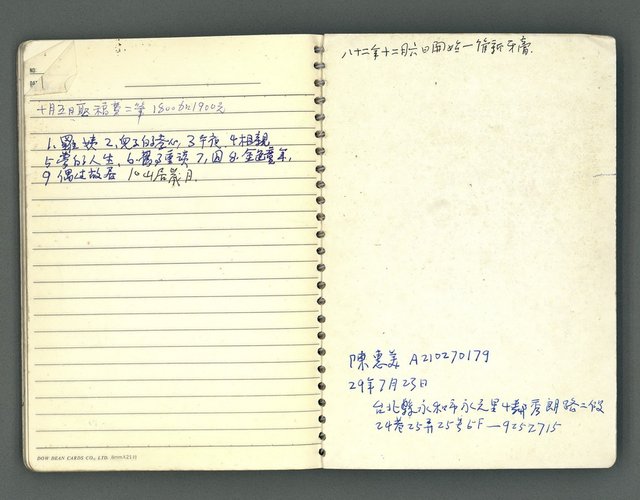 NO.
十月五日取稿費二筆 1800加1900元
1.羅姨 2.兒子的 3.午夜 4相親
5夢的人生 6.舊文重讀 7.因 8.金色童年,
9 偶过故居 10山居歲月
DOW DEAN CARDS CO., LTD.
八十二年十二月六日開始一條新牙膏.
陳惠美 A210270179
29年7月23日
台北縣永和市永元里4鄰秀朗路二段
24巷25弄25号5F—9252715